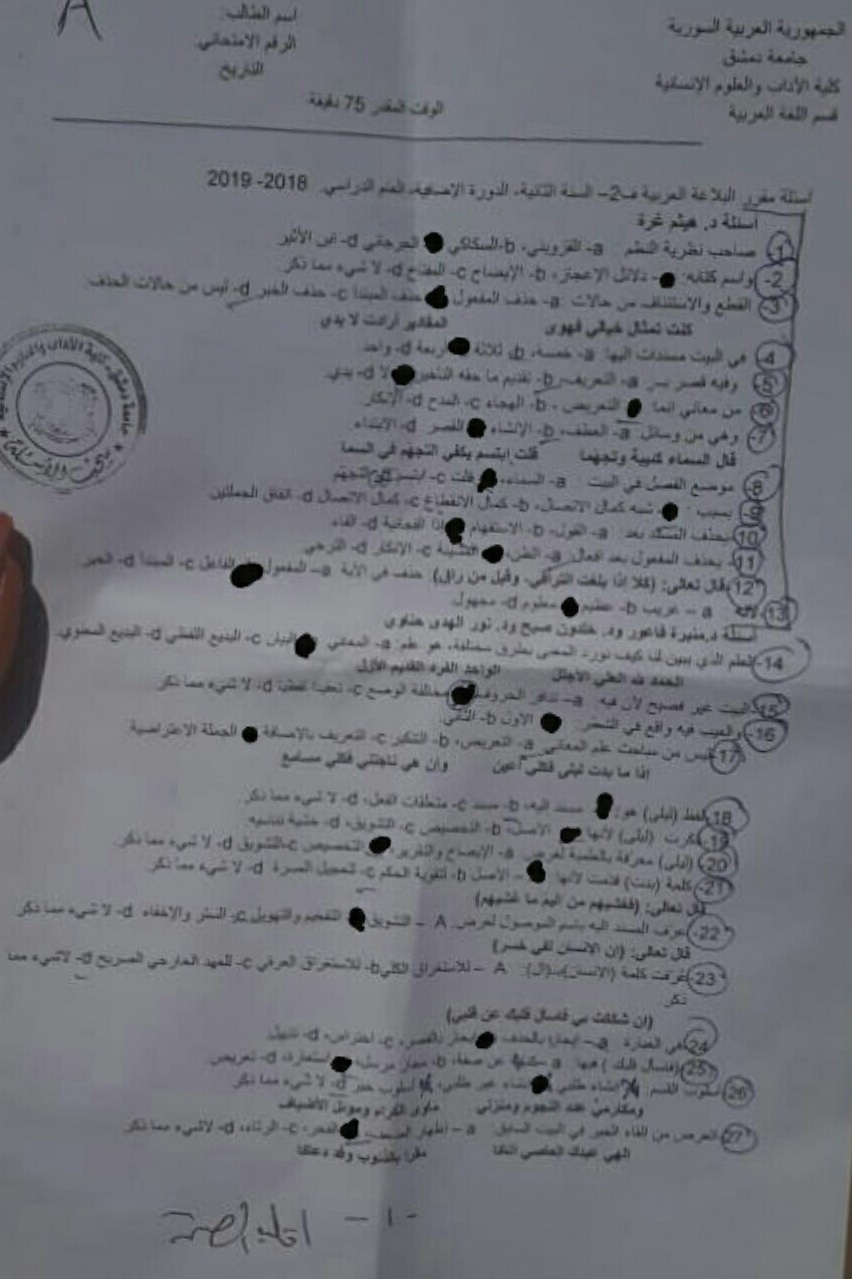 A
الجمهورية العربية السورية
جامعة دمشق
كلية الآداب والعلوم الإنسانية
قسم اللغة العربية
اسم الطالب:
الرقم الامتحاني:
التاريخ
الوقت المقدر 75 دقيقة
أسئلة مقرر البلاغة العربية -2- السنة الثانية، الدورة الإضافية، العام الدراسي. 2018- 2019
أسئلة د. هيثم غرة
1- صاحب نظرية النظم a- القزويني، b-السكاكي الجرجاني d- ابن الأثير
2- واسم كتابه: - دلائل الإعجاز، b- الإيضاح c- المفتاح d- لا شيء مما ذكر
3- القطع والاستئناف من حالات a- حذف المفعول حذف المبتدأ c- حذف الخبر d- ليس من حالات الحذف.
كنت تمثال خيالي فهوى المقادير أرادت لا يدي
4- في البيت مسندات إليها: a- خمسة، b- ثلاثة أربعة d- واحد
5- وفيه قصر بـ a- التعريف، b- تقديم ما حقه التأخير لا d- يدي.
6- من معاني إنما: التعريض، b- الهجاء c- المدح d- الإنكار
7- وهي من وسائل: a- العطف، b- الإنشاء القصر d- الابتداء.
قال السماء كئيبة وتجهما قلت إبتسم يكفي التجهم في السما
8- موضع الفصل في البيت: a- السماء، قلت c- ابتسم التجهم
9- بسبب: شبه كمال الاتصال، b- كمال الانقطاع c- كمال الاتصال d- اتفاق الجملتين
10- يحذف المسند بعد a- القول، b- الاستفهام إذا الفجائية d- الفاء
11- يحذف المفعول بعد أفعال: a- الظن، المشيئة c- الإنكار d- الترجي
12- قال تعالى: (كلا إذا بلغت التراقي، وقيل من راق): حذف في الآية a- المفعول الفاعل c- المبتدأ d- الخبر.
13- لأنه a – غريب b- عظيم معلوم d- مجهول.
أسئلة د.منيرة فاعور ود. خلدون صبح ود. نور الهدى حناوي
14- العلم الذي يبين لنا كيف نورد المعنى بطرق مختلفة، هو علم: a- المعاني البيان c- البديع اللفظي d- البديع المعنوي.
الحمد لله العلي الأجلل الواحد الفرد القديم الأول
15- البيت غير فصيح لأن فيه a- تنافر الحروف مخالفة الوضع c- تعقيدا لفظيا d- لا شيء مما ذكر
16- والعيب فيه واقع في الشطر: الأول b- الثاني.
17- ليس من مباحث علم المعاني a- التعريض، b- التنكير c- التعريف بالإضافة الجملة الاعتراضية
إذا ما بدت ليلى فكلي أعين وإن هي ناجتني فكلي مسامع
18- لفظ (ليلى) هو: - مسند إليه، b- مسند c- متعلقات الفعل، d- لا شيء مما ذكر.
19- ذكرت (ليلى) لأنها الأصل b- التخصيص c- التشويق، d- خشية تناسيه
20- (ليلى) معرفة بالعلمية لغرض a- الإيضاح والتقرير التخصيص c-التشويق d- لا شيء مما ذكر.
21- كلمة (بدت) قدمت لأنها - الأصل b- لتقوية الحكم c- تعجيل المسرة d- لا شيء مما ذكر.
قال تعالى: (فغشيهم من اليم ما غشيهم)
22- عرف المسند إليه باسم الموصول لغرض. A – التشويق التفخيم والتهويل c- الستر والإخفاء d- لا شيء مما ذكر
قال تعالى: (إن الإنسان لفي خسر)
23- عرفت كلمة (الإنسان) بـ(ال): A – للاستغراق الكلي b- للاستغراق العرفي c- للعهد الخارجي الصريح d- لاشيء مما
ذكر
(إن شككت بي فاسأل قلبك عن قلبي)
24- في العبارة a– إيجاز بالحذف إيجاز بالقصر، c- احتراس، d- تذييل
25- (فاسأل قلبك) فيها a- كناية عن صفة، b- مجاز مرسل استعارة، d- تعريض.
26- أسلوب القسم إنشاء طلبي إنشاء غير طلبي، أسلوب خبر d- لا شيء مما ذكر
ومكارمي عند النجوم ومنزلي مأوى الكرام وموئل الأضياف
27- الغرض من إلقاء الخبر في البيت السابق: a – إظهار الضعف، الفخر، c- الرثاء، d- لاشيء مما ذكر
إلهي عبدك العاصي أتاكا مقرا بالذنوب وقد دعاكا
- 1 -